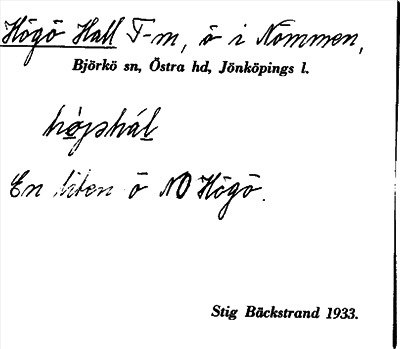 Högö Hall T-m, ö i Nömmen,
Björkö sn, Östra hd, Jönköpings l.
hö̀jshál
En liten ö NO Högö.
Stig Bäckstrand 1933.